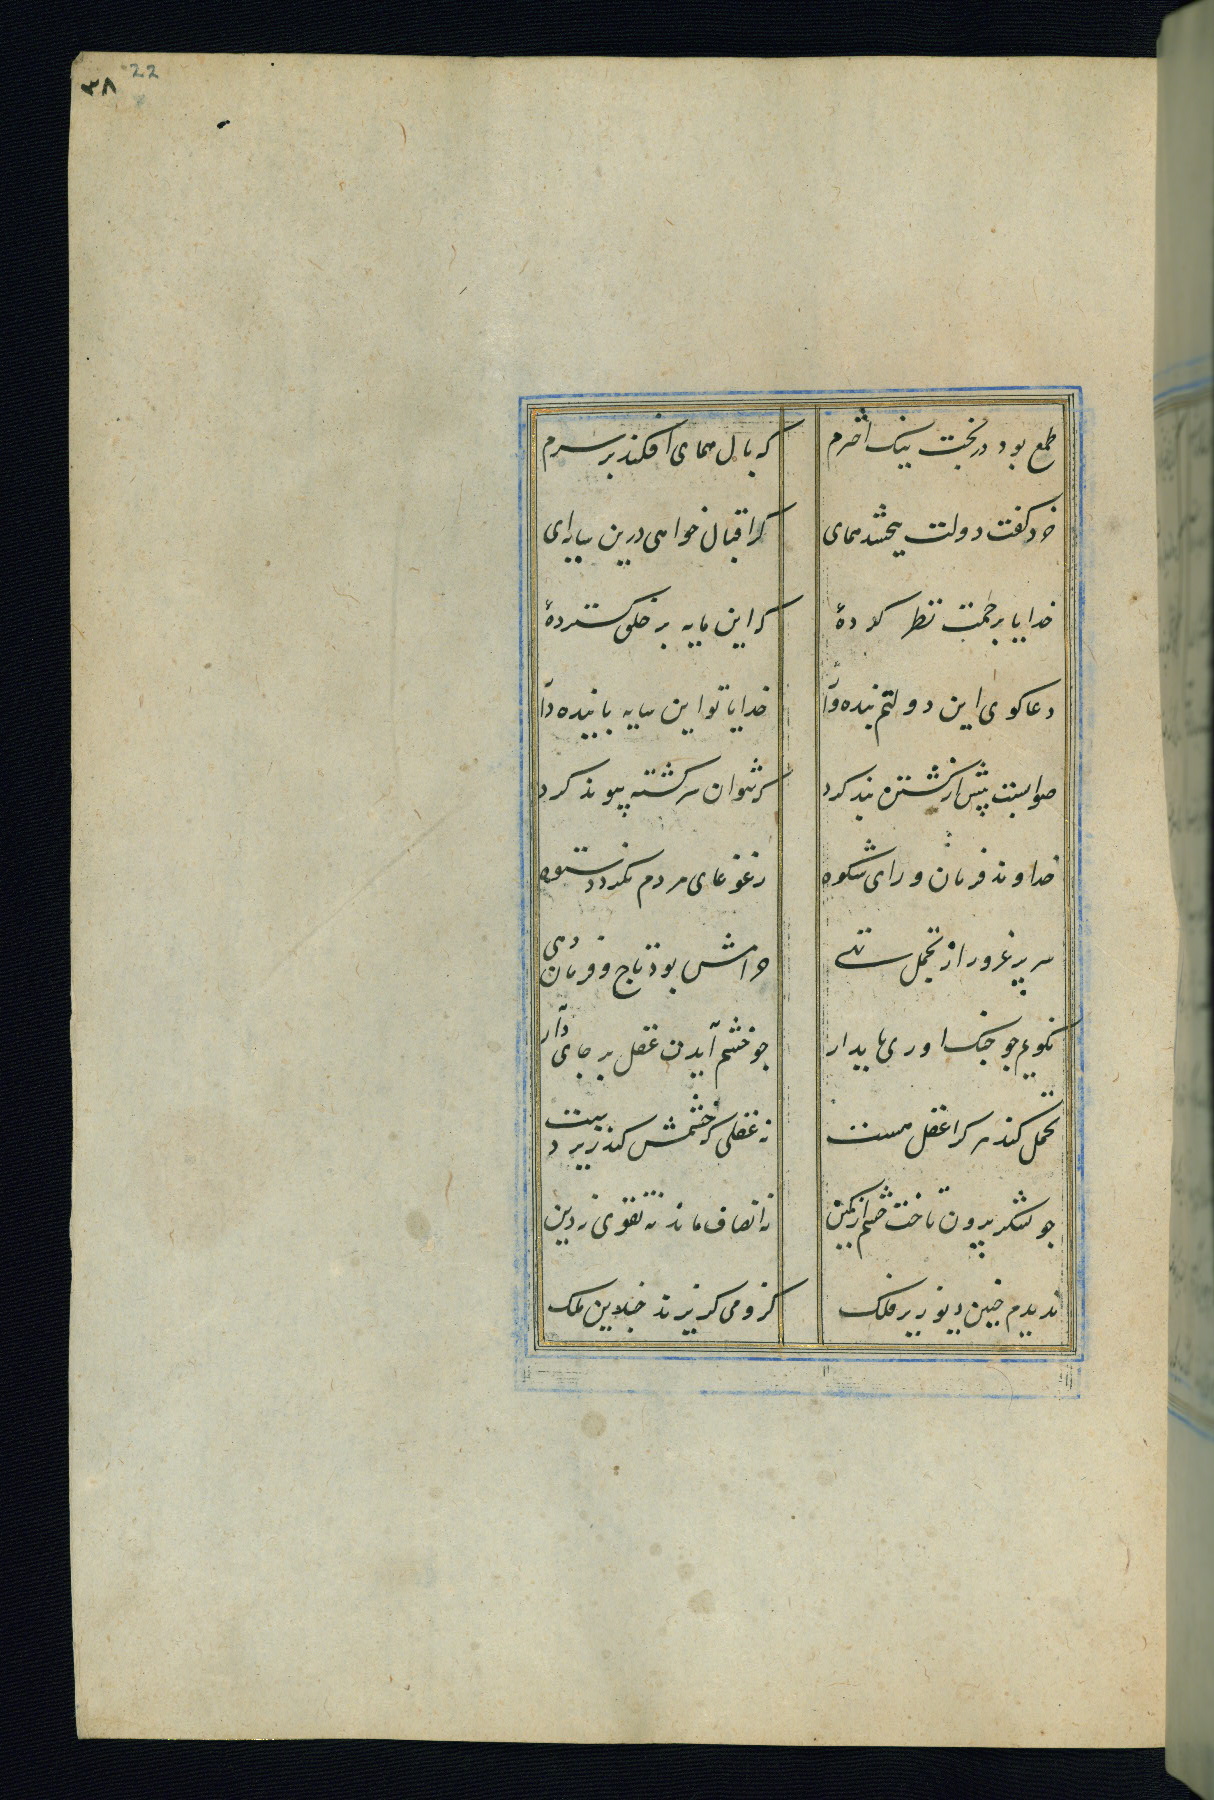 ۳۸ 22
طمع بود در بخت نیک اخترم که بال همای افکند بر سرم
خرد گفت دولت بخشد همای گر اقبال خواهی درین سایه ای
خدایا برحمت نظر کردهٔ که این سایه بر خلق گستردهٔ
دعا کوی این دولتم بنده وار خدایا تو این سایه باینده دار
صوابست پیش از کشتن بند کرد که نتوان سر کشته پیوند کرد
خداوند فرمان و رای شکوه ز غوغای مردم نکردد ستوه
سر پر غرور از تحمل تهی حرامش بود تاج و فرمان دهی
نکویم جو جنک اوری پایدار جو خشم آیدت عقل بر جای دار
تحمل کند هر کرا عقل هست نه عقلی که خشمش کند زیر دست
جو لشکر برون تاخت خشم از کمین نه انصاف ماند نه تقوی نه دین
ندیدم جنین دیو زیر فلک کزو می کریزند جندین ملک